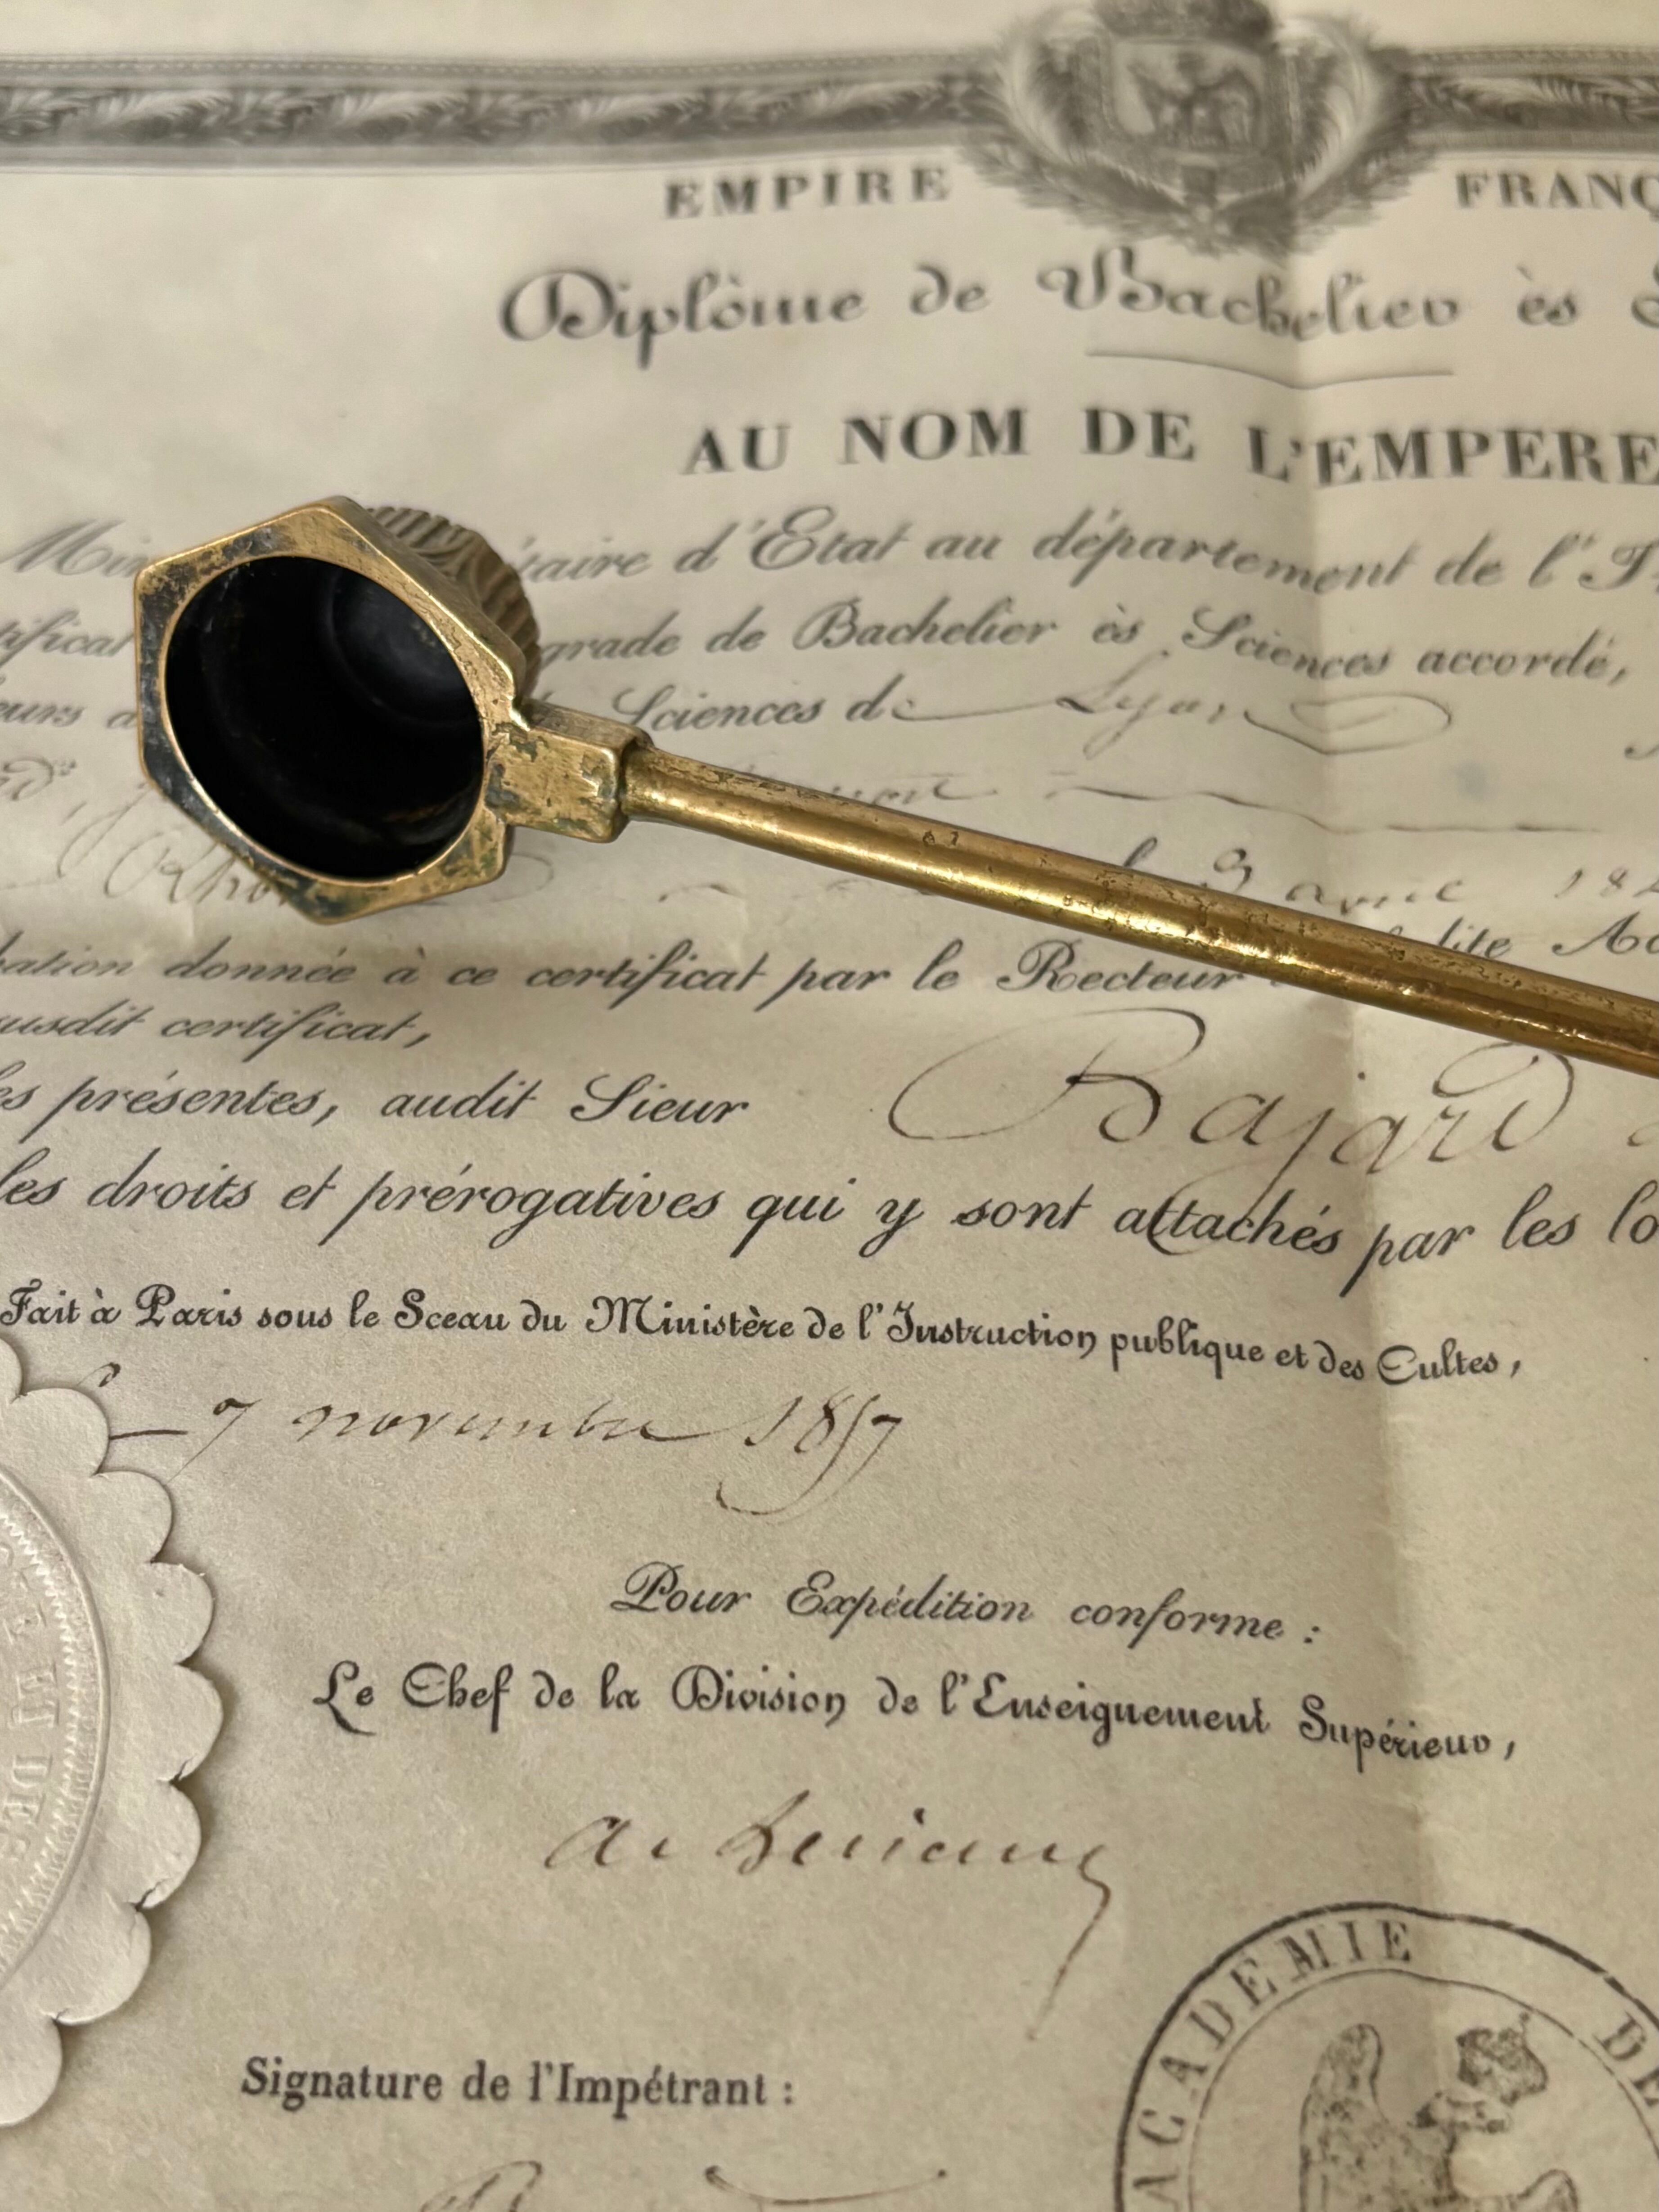 EMPIRE FRANÇ
Diplôme de Bachelier ès
AU NOM DE L'EMPERE
Min taire d'État au département de l'I
tificat grade de Bachelier ès Sciences accordé,
eurs a Sciences de Lyon
Rhô le 9 avril 18
bation donnée à ce certificat par le Recteur dite Ac
usdit certificat,
es présentes, audit Sieur Bajard
les droits et prérogatives qui y sont attachés par les lo
Fait à Paris sous le Sceau du Ministère de l'Instruction publique et des Cultes,
Le 7 novembre 1857
Pour Expédition conforme :
Le Chef de la Division de l'Enseignement Supérieur,
Signature de l'Impétrant :
ACADEMIE DE